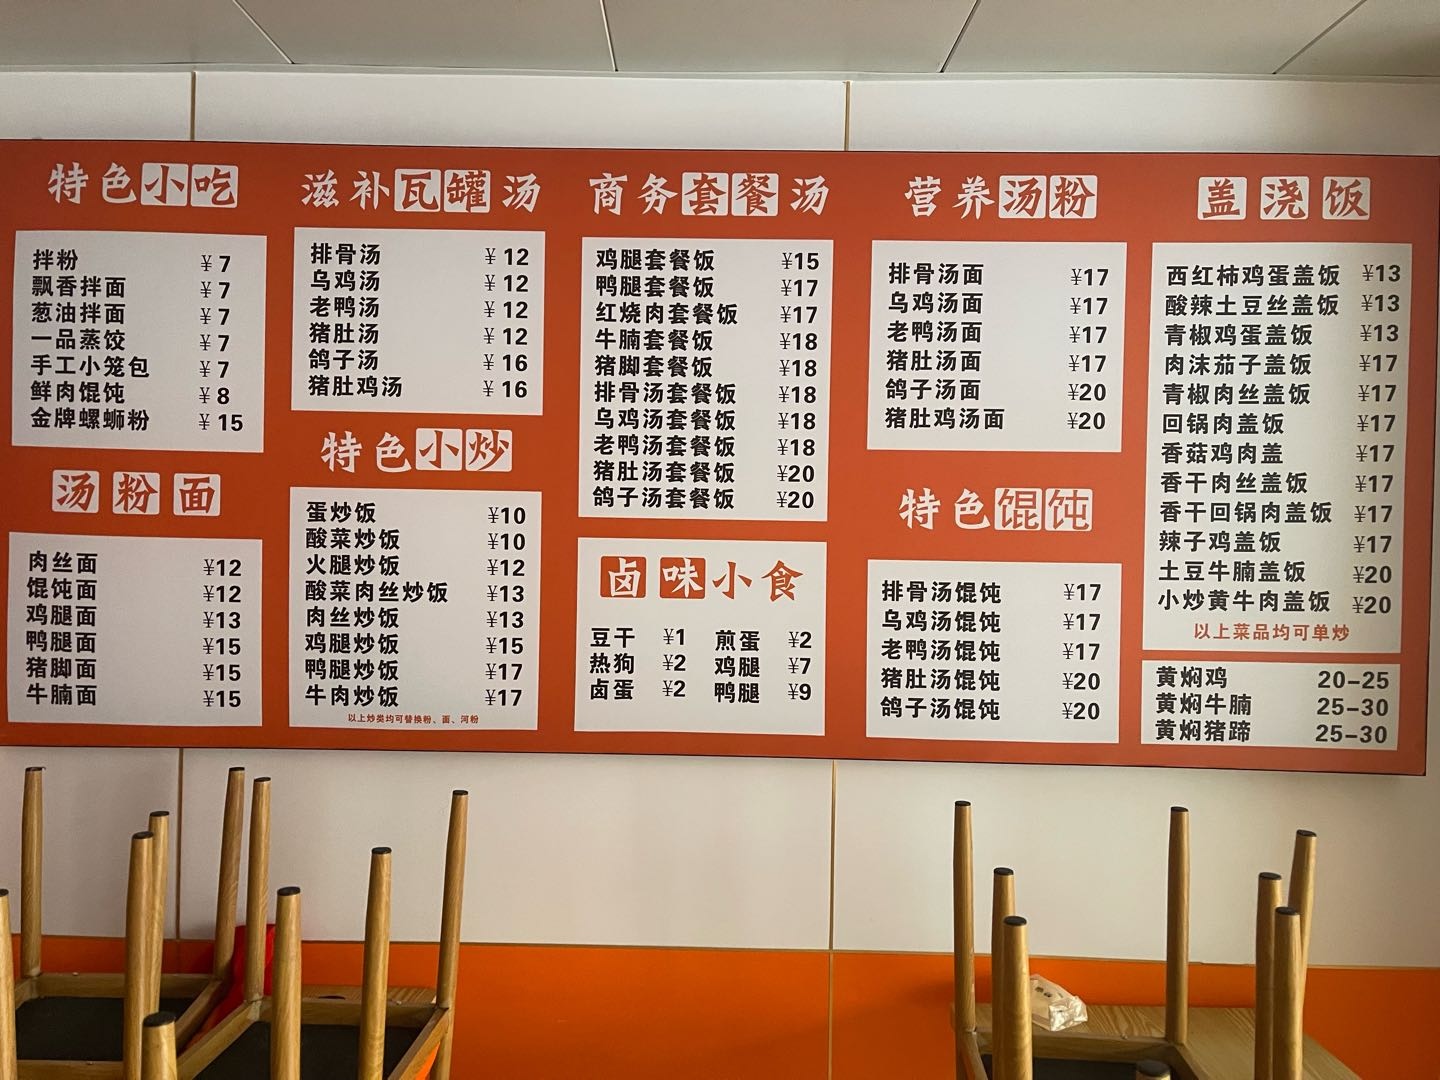 特色小吃
拌粉 ¥7
飘香拌面 ¥7
葱油拌面 ¥7
一品蒸饺 ¥7
手工小笼包 ¥7
鲜肉馄饨 ¥8
金牌螺蛳粉 ¥15
汤粉面
肉丝面 ¥12
馄饨面 ¥12
鸡腿面 ¥13
鸭腿面 ¥15
猪脚面 ¥15
牛腩面 ¥15
滋补瓦罐汤
排骨汤 ¥12
乌鸡汤 ¥12
老鸭汤 ¥12
猪肚汤 ¥12
鸽子汤 ¥16
猪肚鸡汤 ¥16
特色小炒
蛋炒饭 ¥10
酸菜炒饭 ¥10
火腿炒饭 ¥12
酸菜肉丝炒饭 ¥13
肉丝炒饭 ¥13
鸡腿炒饭 ¥15
鸭腿炒饭 ¥17
牛肉炒饭 ¥17
以上炒类均可替换粉、面、河粉
商务套餐汤
鸡腿套餐饭 ¥15
鸭腿套餐饭 ¥17
红烧肉套餐饭 ¥17
牛腩套餐饭 ¥18
猪脚套餐饭 ¥18
排骨汤套餐饭 ¥18
乌鸡汤套餐饭 ¥18
老鸭汤套餐饭 ¥18
猪肚汤套餐饭 ¥20
鸽子汤套餐饭 ¥20
卤味小食
豆干 ¥1 煎蛋 ¥2
热狗 ¥2 鸡腿 ¥7
卤蛋 ¥2 鸭腿 ¥9
营养汤粉
排骨汤面 ¥17
乌鸡汤面 ¥17
老鸭汤面 ¥17
猪肚汤面 ¥17
鸽子汤面 ¥20
猪肚鸡汤面 ¥20
特色馄饨
排骨汤馄饨 ¥17
乌鸡汤馄饨 ¥17
老鸭汤馄饨 ¥17
猪肚汤馄饨 ¥20
鸽子汤馄饨 ¥20
盖浇饭
西红柿鸡蛋盖饭 ¥13
酸辣土豆丝盖饭 ¥13
青椒鸡蛋盖饭 ¥13
肉沫茄子盖饭 ¥17
青椒肉丝盖饭 ¥17
回锅肉盖饭 ¥17
香菇鸡肉盖 ¥17
香干肉丝盖饭 ¥17
香干回锅肉盖饭 ¥17
辣子鸡盖饭 ¥17
土豆牛腩盖饭 ¥20
小炒黄牛肉盖饭 ¥20
以上菜品均可单炒
黄焖鸡 20-25
黄焖牛腩 25-30
黄焖猪蹄 25-30